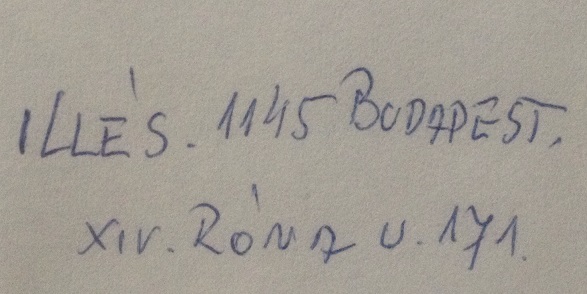 ILLÉS. 1145 BUDAPEST.
XIV. RÓNA U. 171.